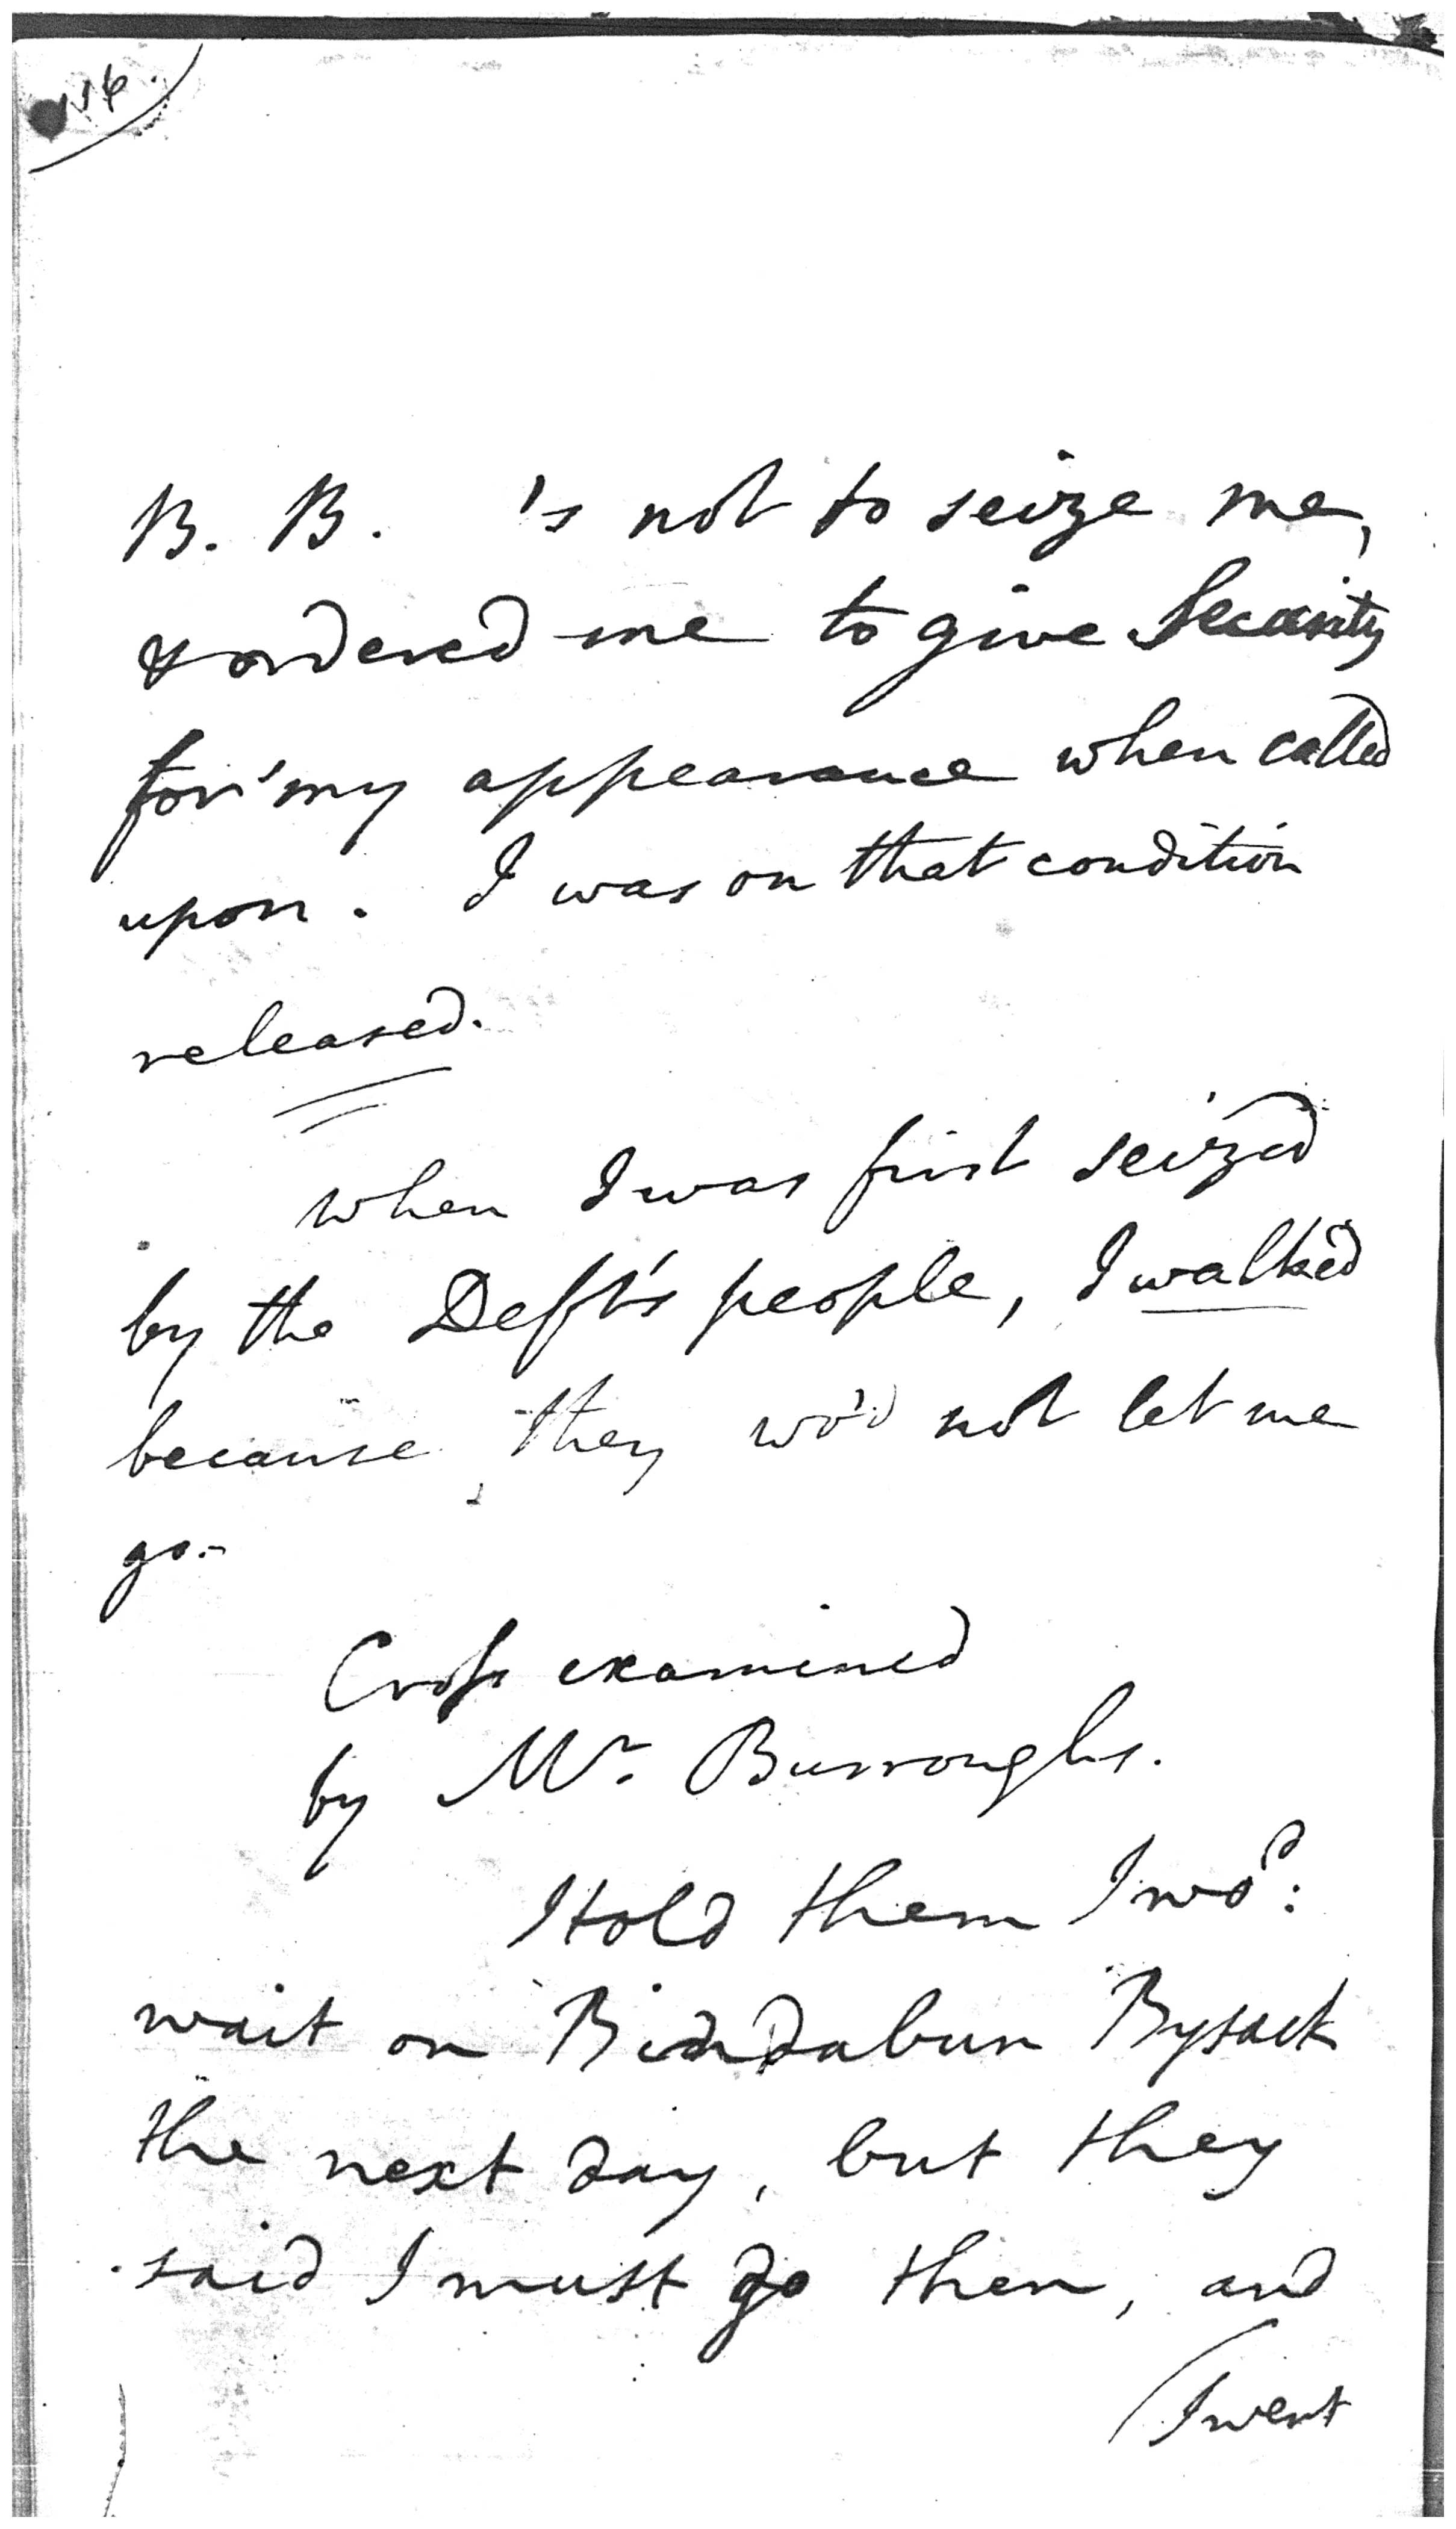 B. B. 's not to seize me,
& ordered me to give Security
for my appearance when called
upon. I was on that condition
released.
when I was first seized
by the Deft's people, I walked
because they wo'd not let me
go.-
Cross examined
by Mr. Burroughs.
I told them I wod:
wait on Bindabun Bysack
the next day, but they
said I must go then, and
I went